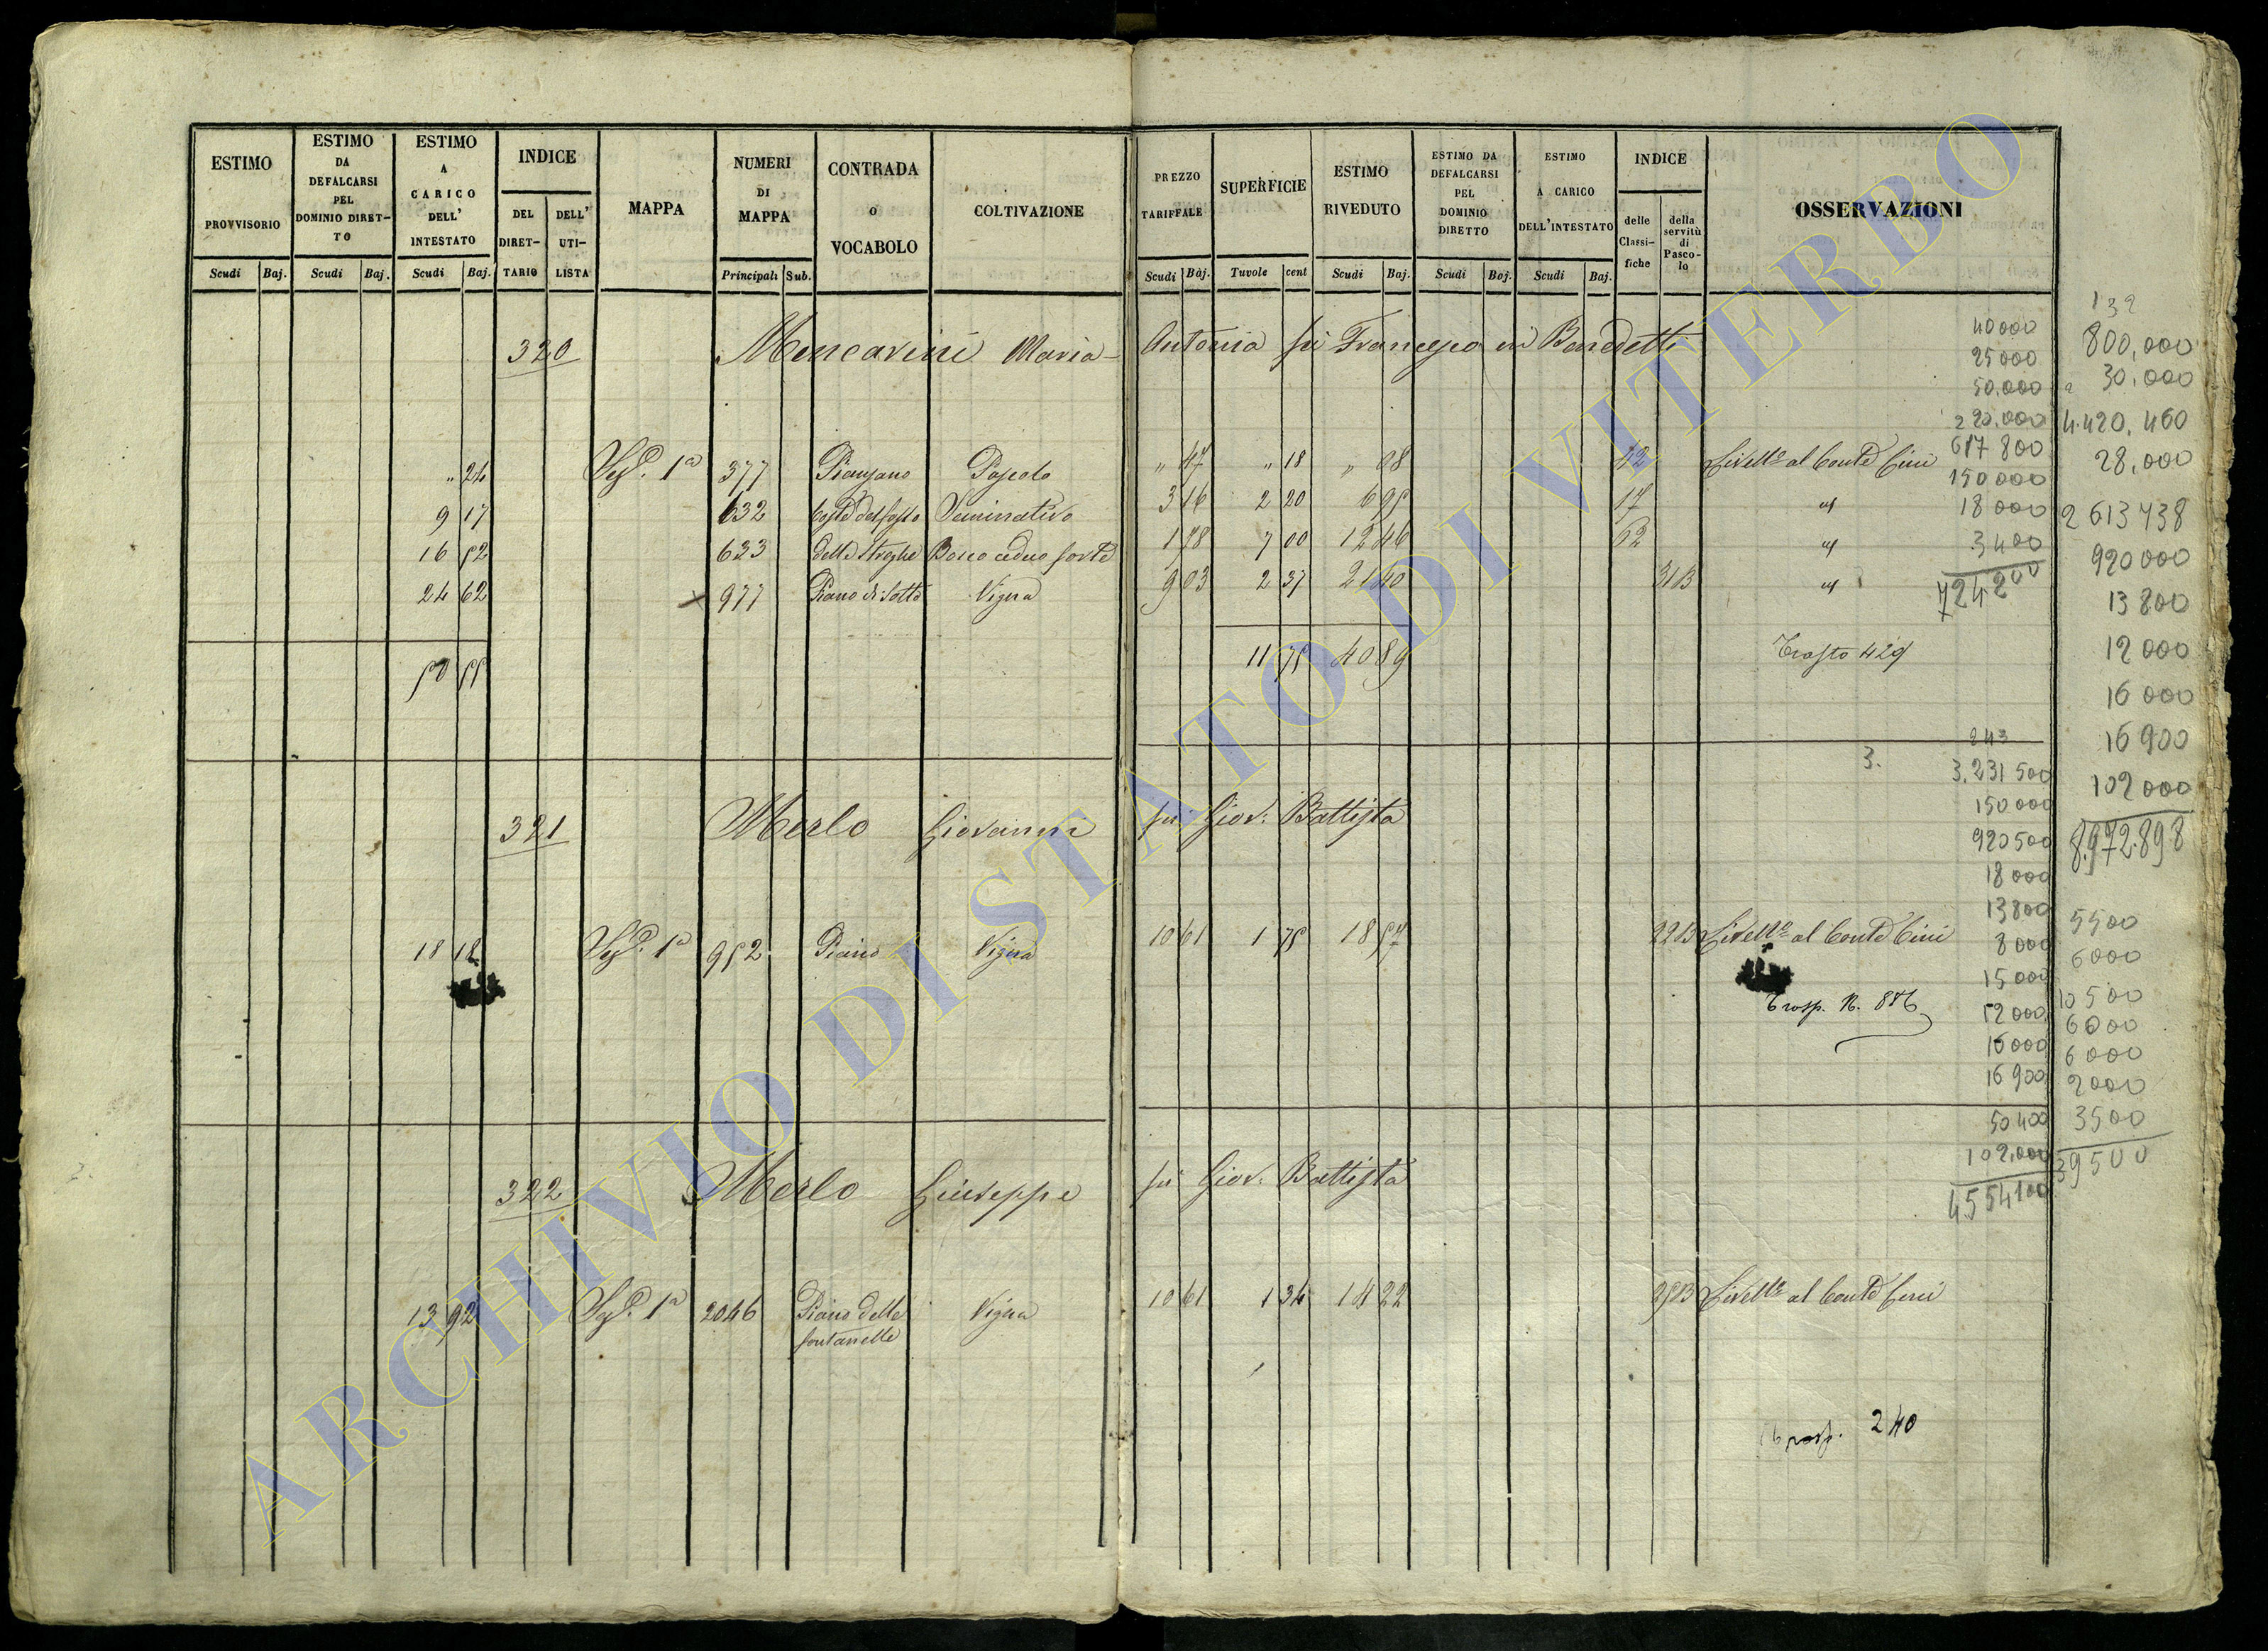 ESTIMO PROVVISORIO Scudi Baj.
ESTIMO DA DEFALCARSI PEL DOMINIO DIRET-TO Scudi Baj.
ESTIMO A CARICO DELL' INTESTATO Scudi Baj.
INDICE DEL DIRET-TARIO DELL' UTI-LISTA
MAPPA
NUMERI DI MAPPA Principali Sub.
CONTRADA o VOCABOLO
COLTIVAZIONE
PREZZO TARIFFALE Scudi Baj.
SUPERFICIE Tavole cent
ESTIMO RIVEDUTO Scudi Baj.
ESTIMO DA DEFALCARSI PEL DOMINIO DIRETTO Scudi Baj.
ESTIMO A CARICO DELL'INTESTATO Scudi Baj.
INDICE delle Classi-fiche della servitù di Pasco-lo
OSSERVAZIONI
320 Mencarini Maria Antonia fu Francesco in Benedetti
" 24 Sez. 1a 377 Pianzano Pascolo " 47 " 18 " 08 42 Livello al Conte Cini
9 17 632 Seminativo 3 16 2 20 6 95 17 id
16 52 633 delle Streghe Bosco ceduo forte 1 78 7 00 12 46 62 id
24 62 977 Piano di Sotto Vigna 9 03 2 37 21 40 31B id
50 55 11 75 40 89 Trasp 429
321 Merlo Giovanni fu Giov. Battista
18 18 Sez. 1a 952 Piano Vigna 10 61 1 75 18 57 22B Livello al Conte Cini
Trasp. N. 886
322 Merlo Giuseppe fu Giov. Battista
13 92 Sez. 1a 2046 Piano delle Vigna 10 61 1 34 14 22 25B Livello al Conte Cini
fontanelle
Trasp. 240
40000
25000
50.000
220.000
617 800
150000
18000
3400
724200
243
3.
3.231 500
150000
920500
18000
13800
8000
15000
12000
16000
16900
50400
102.000
4554100
132
800,000
30.000
4.420.460
28.000
2613738
920000
13800
12000
16000
16900
102000
8.972.898
5500
6000
10500
6000
6000
2000
3500
39500
ARCHIVIO DI STATO DI VITERBO